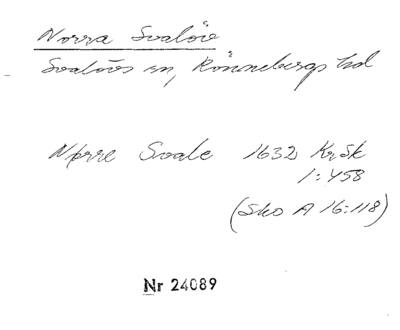 Norra Svalöv
Svalövs sn, Rönnebergs hd
Nørre Svale 1632 KrSk
1:458
(Sko A 16:118)
Nr 24089